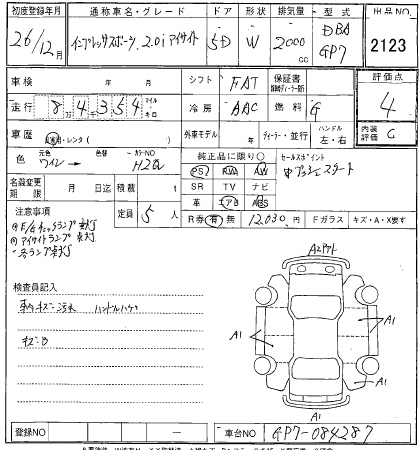 初度登録年月 通称車名・グレード ドア 形状 排気量 型式 出品NO
26/12月 インプレッサスポーツ 2.0i アイサイト 5D W 2000cc DBA GP7 2123
車検 年 月 シフト FAT 保証書 評価点
走行 8万4千354 マイル キロ 冷房 AAC 燃料 G 4
車歴 自家用・レンタ 外車モデル 年 ディーラー・並行 ハンドル 左・右 内装評価 C
色 元色 ワイン 色替 カラーNO H2Q 純正品に限り○ セールスポイント
PS PW AW プッシュスタート
名義変更期限 月 日迄 積載 t SR TV ナビ
定員 5人 革 エアB ABS
注意事項 R券 有 無 12,030円 Fガラス キズ・A・X要す
アイサイトランプ点灯
検査員記入
車内キズ・汚れ ハンドルハゲ
キズB
A2
A1
A1
A1
A1
A1
登録NO 車台NO GP7-084287